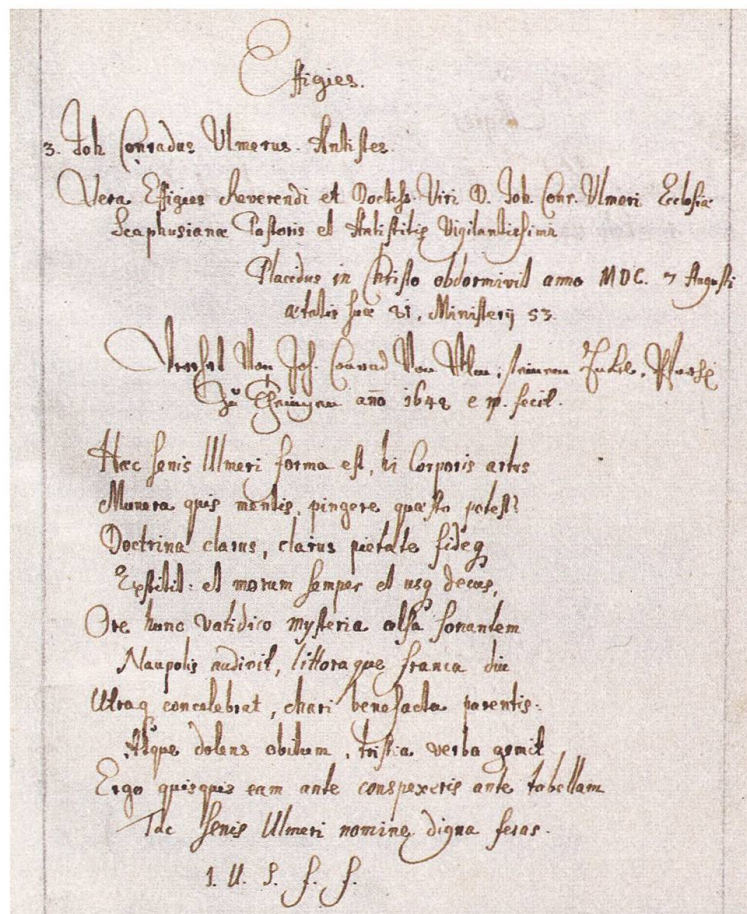 Effigies.
3. Joh Conradus Ulmerus. Antistes.
Vera Effigies Reverendi et Doctiss. Viri D. Joh. Conr. Ulmeri Ecclesiæ
Scaphusianæ Pastoris et Antistitis Vigilantissimi
Placedus in Christo obdormivit anno MDC. 7 Augusti
ætatis suæ 81, Ministerij 53.
Von Joh. Conrad Von Ulm,
Zu año 1648 e p. fecit.
Hæc senis Ulmeri forma est, hi Corporis artus
Munera quis mentis, pingere quæso potest?
Doctrina clarus, clarus pietate fideq
Exstitit: et morum semper et usq decus,
Ore hunc vatidico mysteria alta sonantem
Naupolis audivit, littoraque franca diu
Utraq concelebrat, chari benefacta parentis:
Atque dolens obitum, tristia verba gemit
Ergo quisquis eam ante conspexeris ante tabellam
Fac senis Ulmeri nomine digna feras.
J. U. S. f. f.